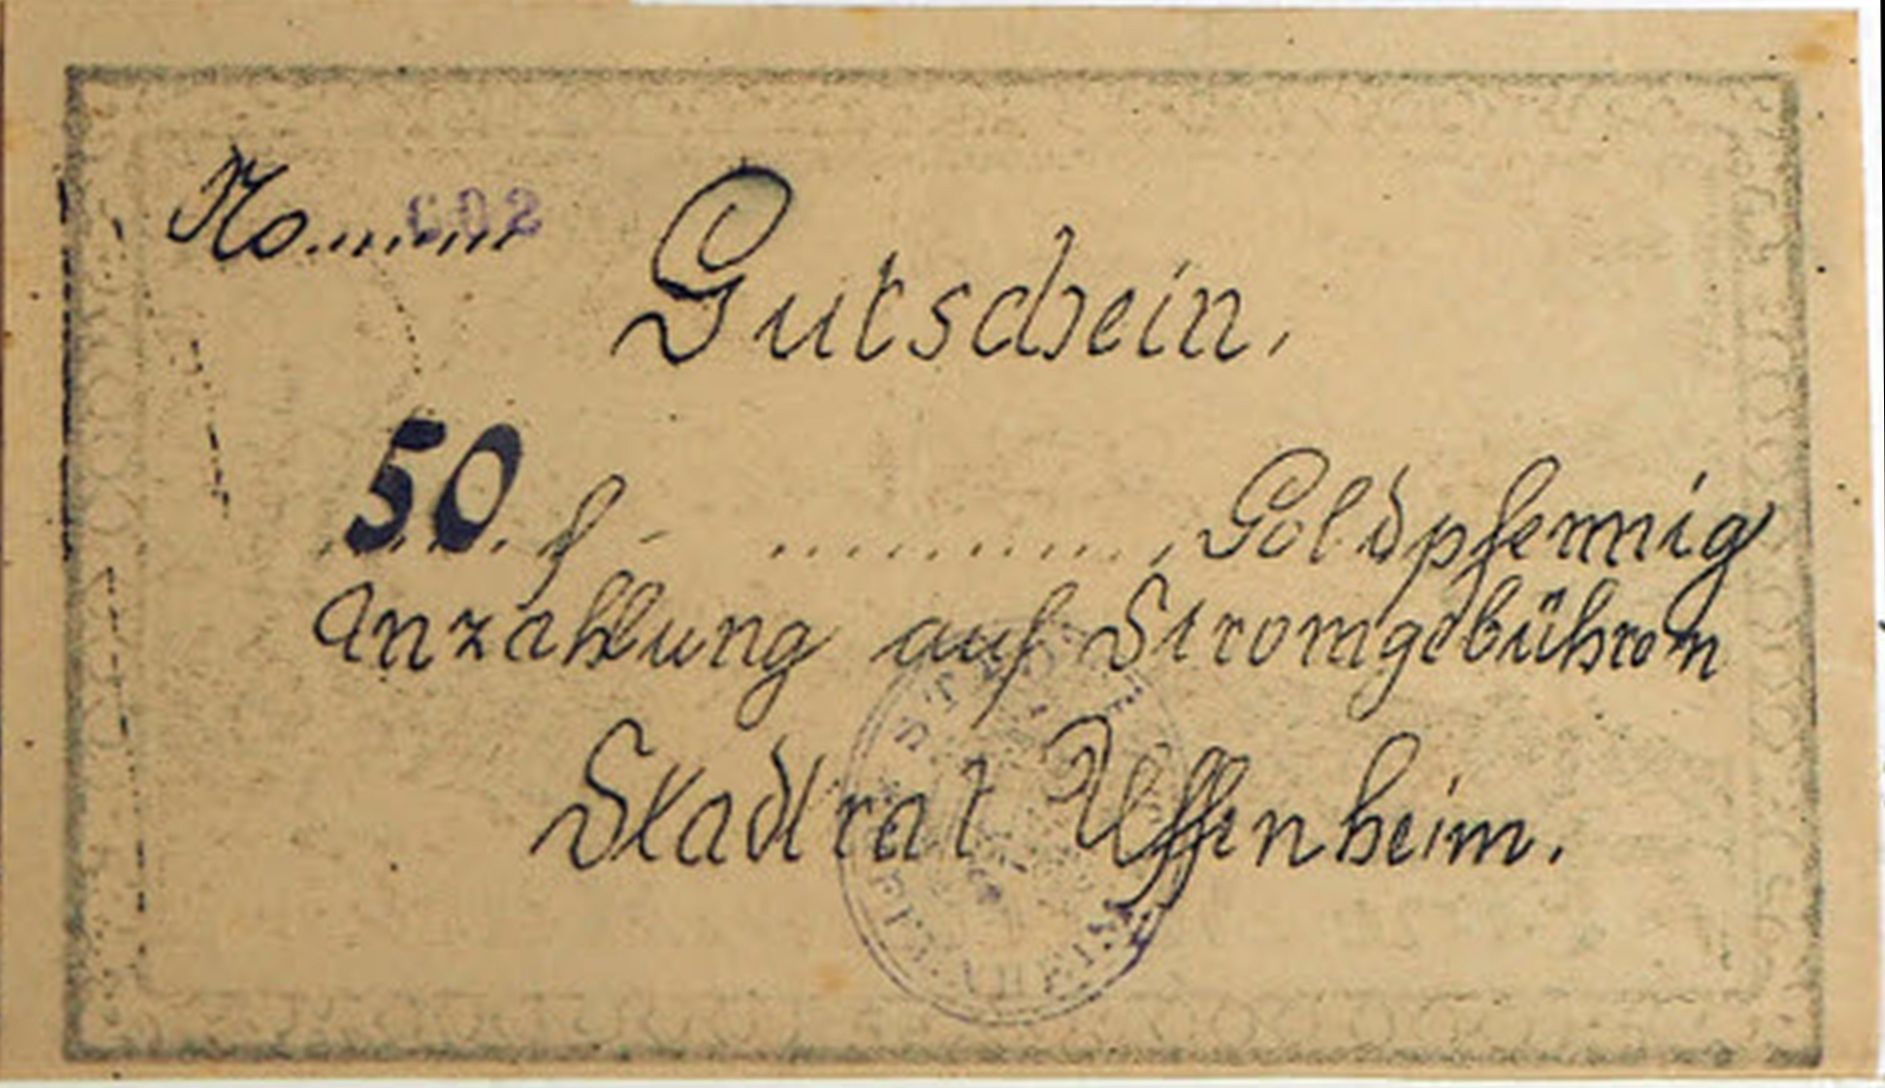 No. 602
Gutschein.
50 ₰ Goldpfennig
Anzahlung auf Stromgebühren
Stadtrat Uffenheim.